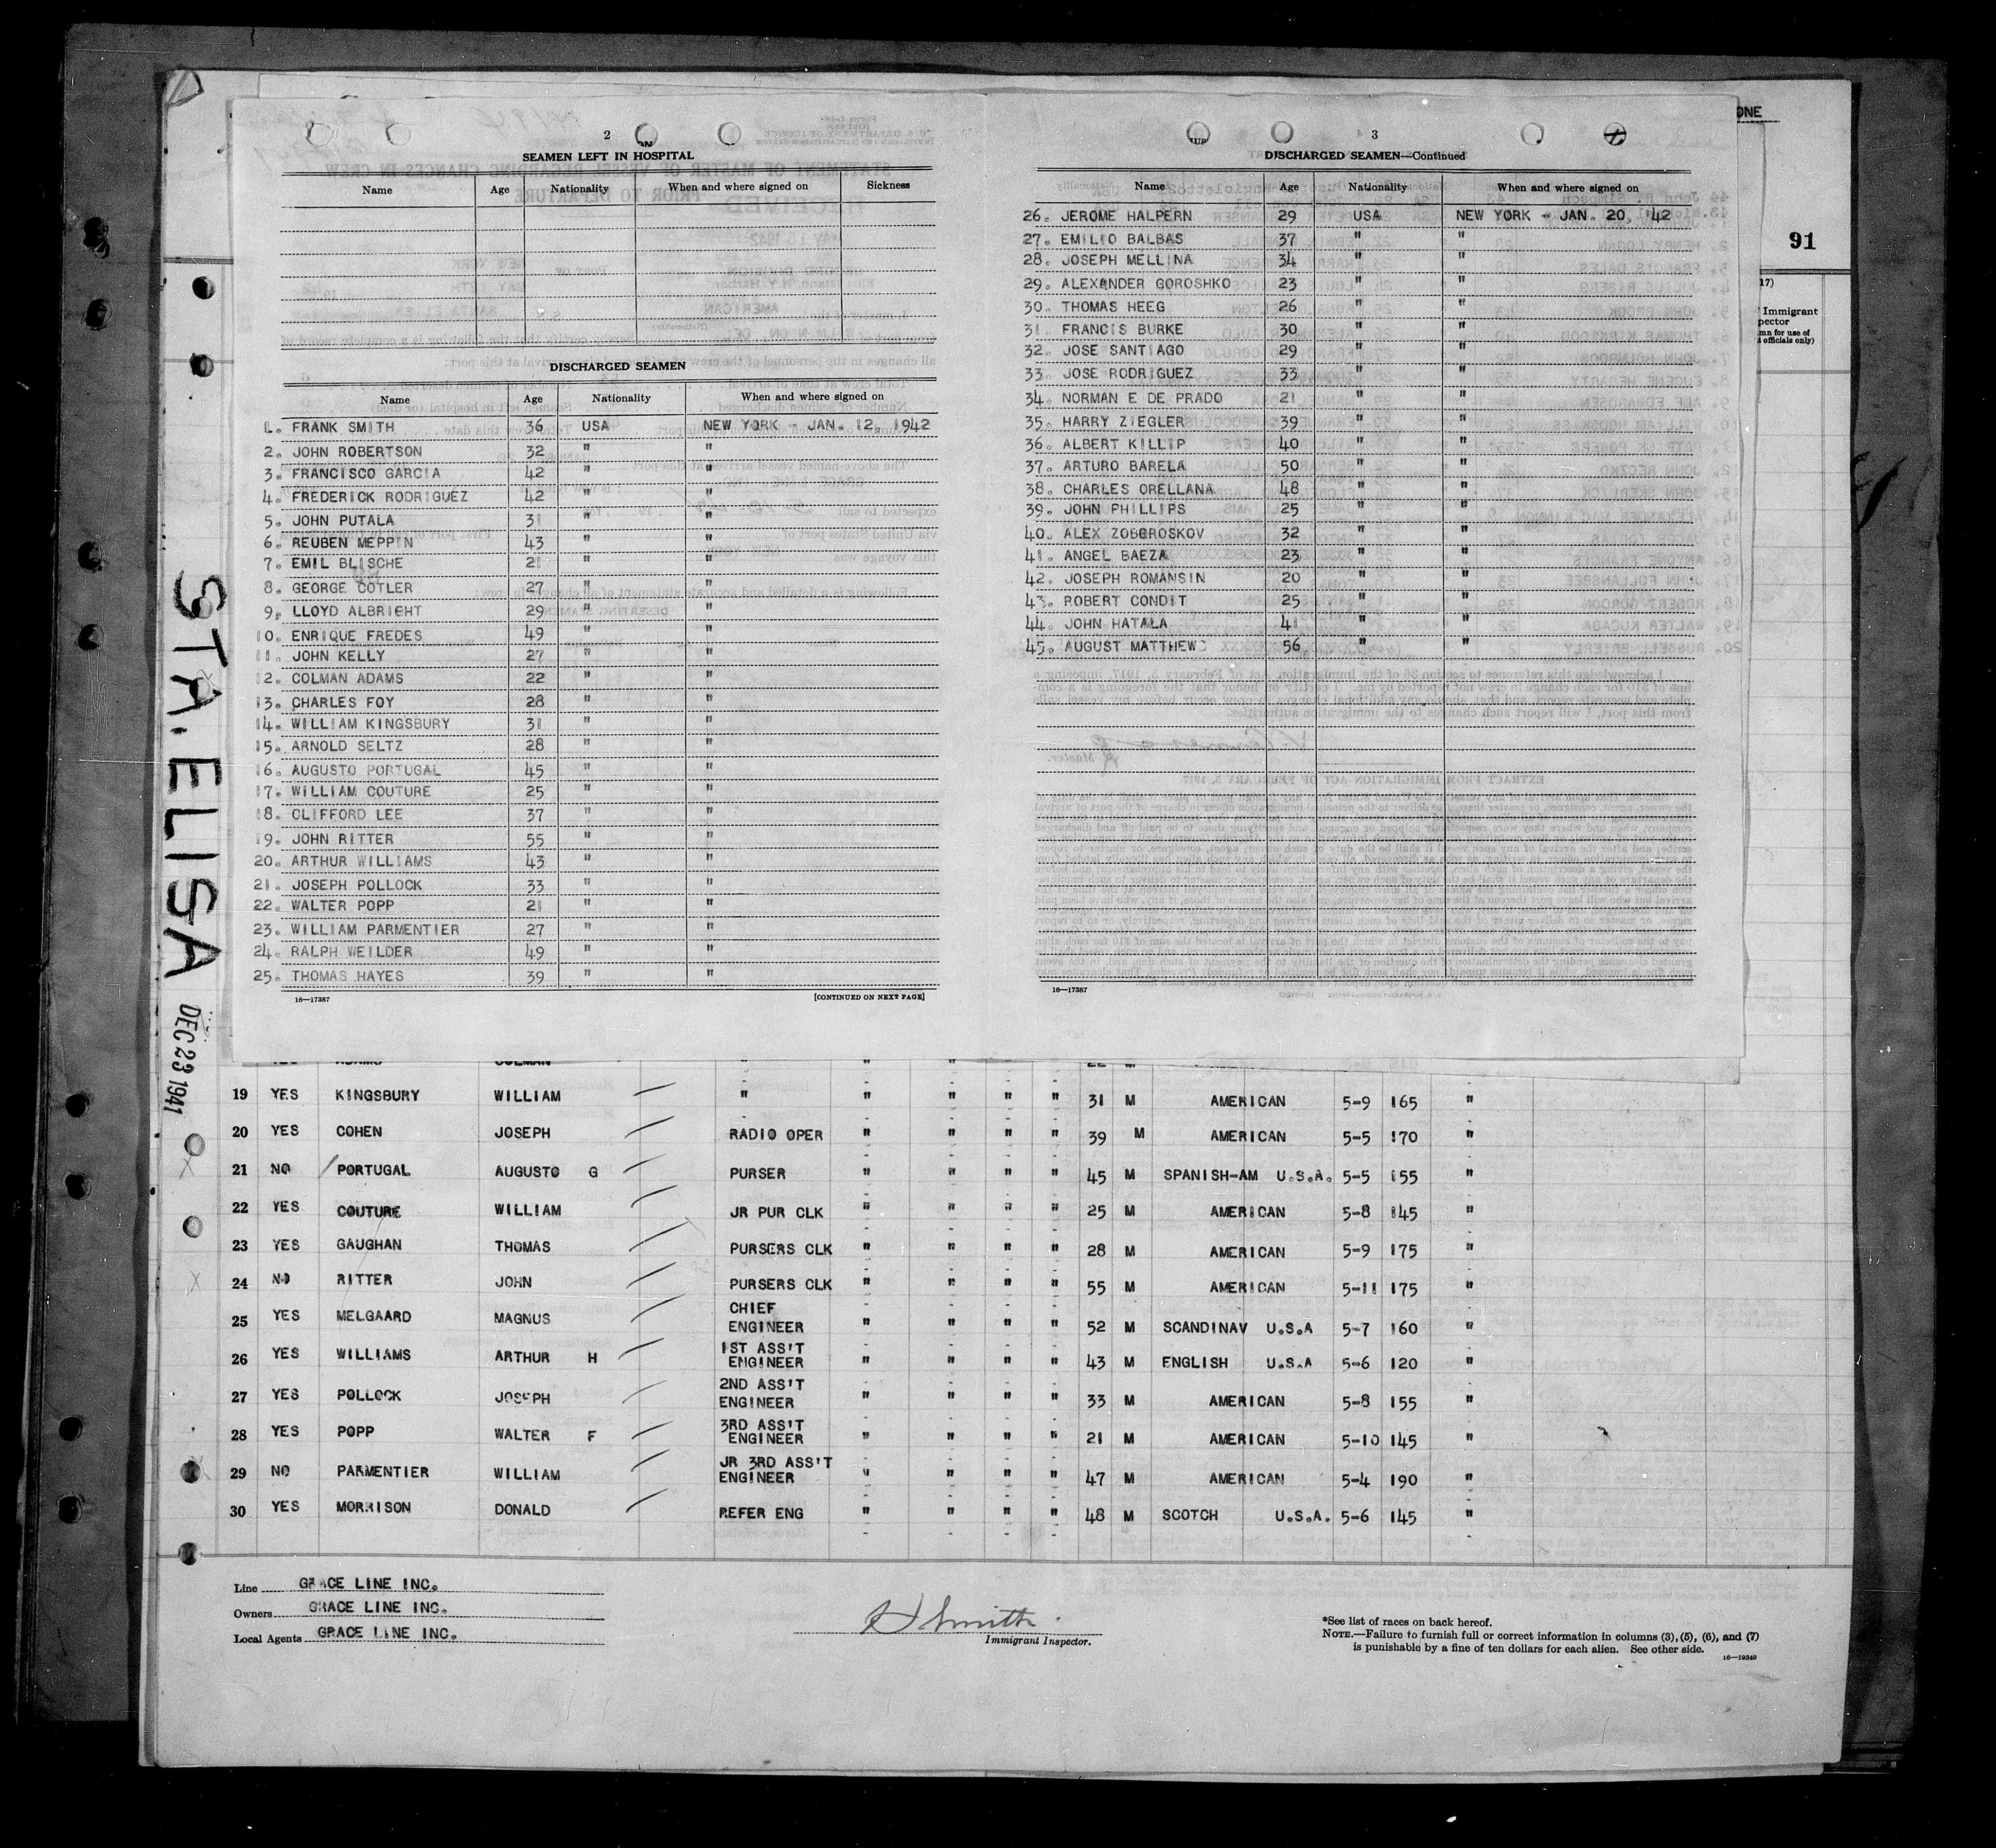 2
SEAMEN LEFT IN HOSPITAL
Name Age Nationality When and where signed on Sickness
DISCHARGED SEAMEN
Name Age Nationality When and where signed on
1. FRANK SMITH 36 USA NEW YORK - JAN. 12, 1942
2. JOHN ROBERTSON 32 " "
3. FRANCISCO GARCIA 42 " "
4. FREDERICK RODRIGUEZ 42 " "
5. JOHN PUTALA 31 " "
6. REUBEN MEPPIN 43 " "
7. EMIL BLISCHE 21 " "
8. GEORGE COTLER 27 " "
9. LLOYD ALBRIGHT 29 " "
10. ENRIQUE FREDES 49 " "
11. JOHN KELLY 27 " "
12. COLMAN ADAMS 22 " "
13. CHARLES FOY 28 " "
14. WILLIAM KINGSBURY 31 " "
15. ARNOLD SELTZ 28 " "
16. AUGUSTO PORTUGAL 45 " "
17. WILLIAM COUTURE 25 " "
18. CLIFFORD LEE 37 " "
19. JOHN RITTER 55 " "
20. ARTHUR WILLIAMS 43 " "
21. JOSEPH POLLOCK 33 " "
22. WALTER POPP 21 " "
23. WILLIAM PARMENTIER 27 " "
24. RALPH WEILDER 49 " "
25. THOMAS HAYES 39 " "
16—17387 [CONTINUED ON NEXT PAGE]
3
DISCHARGED SEAMEN—Continued
Name Age Nationality When and where signed on
26. JEROME HALPERN 29 USA NEW YORK - JAN. 20, '42
27. EMILIO BALBAS 37 " "
28. JOSEPH MELLINA 34 " "
29. ALEXANDER GOROSHKO 23 " "
30. THOMAS HEEG 26 " "
31. FRANCIS BURKE 30 " "
32. JOSE SANTIAGO 29 " "
33. JOSE RODRIGUEZ 33 " "
34. NORMAN E DE PRADO 21 " "
35. HARRY ZIEGLER 39 " "
36. ALBERT KILLIP 40 " "
37. ARTURO BARELA 50 " "
38. CHARLES ORELLANA 48 " "
39. JOHN PHILLIPS 25 " "
40. ALEX ZOBOROSKOV 32 " "
41. ANGEL BAEZA 23 " "
42. JOSEPH ROMANSIN 20 " "
43. ROBERT CONDIT 25 " "
44. JOHN HATALA 41 " "
45. AUGUST MATTHEWS 56 " "
16—17387
91
Immigrant
STA. ELISA DEC 23 1941
19 YES KINGSBURY WILLIAM " " " " " 31 M AMERICAN 5-9 165 "
20 YES COHEN JOSEPH RADIO OPER " " " " 39 M AMERICAN 5-5 170 "
21 NO PORTUGAL AUGUSTO G PURSER " " " " 45 M SPANISH-AM U.S.A. 5-5 155 "
22 YES COUTURE WILLIAM JR PUR CLK " " " " 25 M AMERICAN 5-8 145 "
23 YES GAUGHAN THOMAS PURSERS CLK " " " " 28 M AMERICAN 5-9 175 "
24 NO RITTER JOHN PURSERS CLK " " " " 55 M AMERICAN 5-11 175 "
25 YES MELGAARD MAGNUS CHIEF ENGINEER " " " " 52 M SCANDINAV U.S.A 5-7 160 "
26 YES WILLIAMS ARTHUR H 1ST ASS'T ENGINEER " " " " 43 M ENGLISH U.S.A 5-6 120 "
27 YES POLLOCK JOSEPH 2ND ASS'T ENGINEER " " " " 33 M AMERICAN 5-8 155 "
28 YES POPP WALTER F 3RD ASS'T ENGINEER " " " " 21 M AMERICAN 5-10 145 "
29 NO PARMENTIER WILLIAM JR 3RD ASS'T ENGINEER " " " " 47 M AMERICAN 5-4 190 "
30 YES MORRISON DONALD REFER ENG " " " " 48 M SCOTCH U.S.A. 5-6 145 "
Line GRACE LINE INC.
Owners GRACE LINE INC.
Local Agents GRACE LINE INC.
H Smith
Immigrant Inspector.
*See list of races on back hereof.
NOTE.—Failure to furnish full or correct information in columns (3), (5), (6), and (7)
is punishable by a fine of ten dollars for each alien. See other side.
16—19349